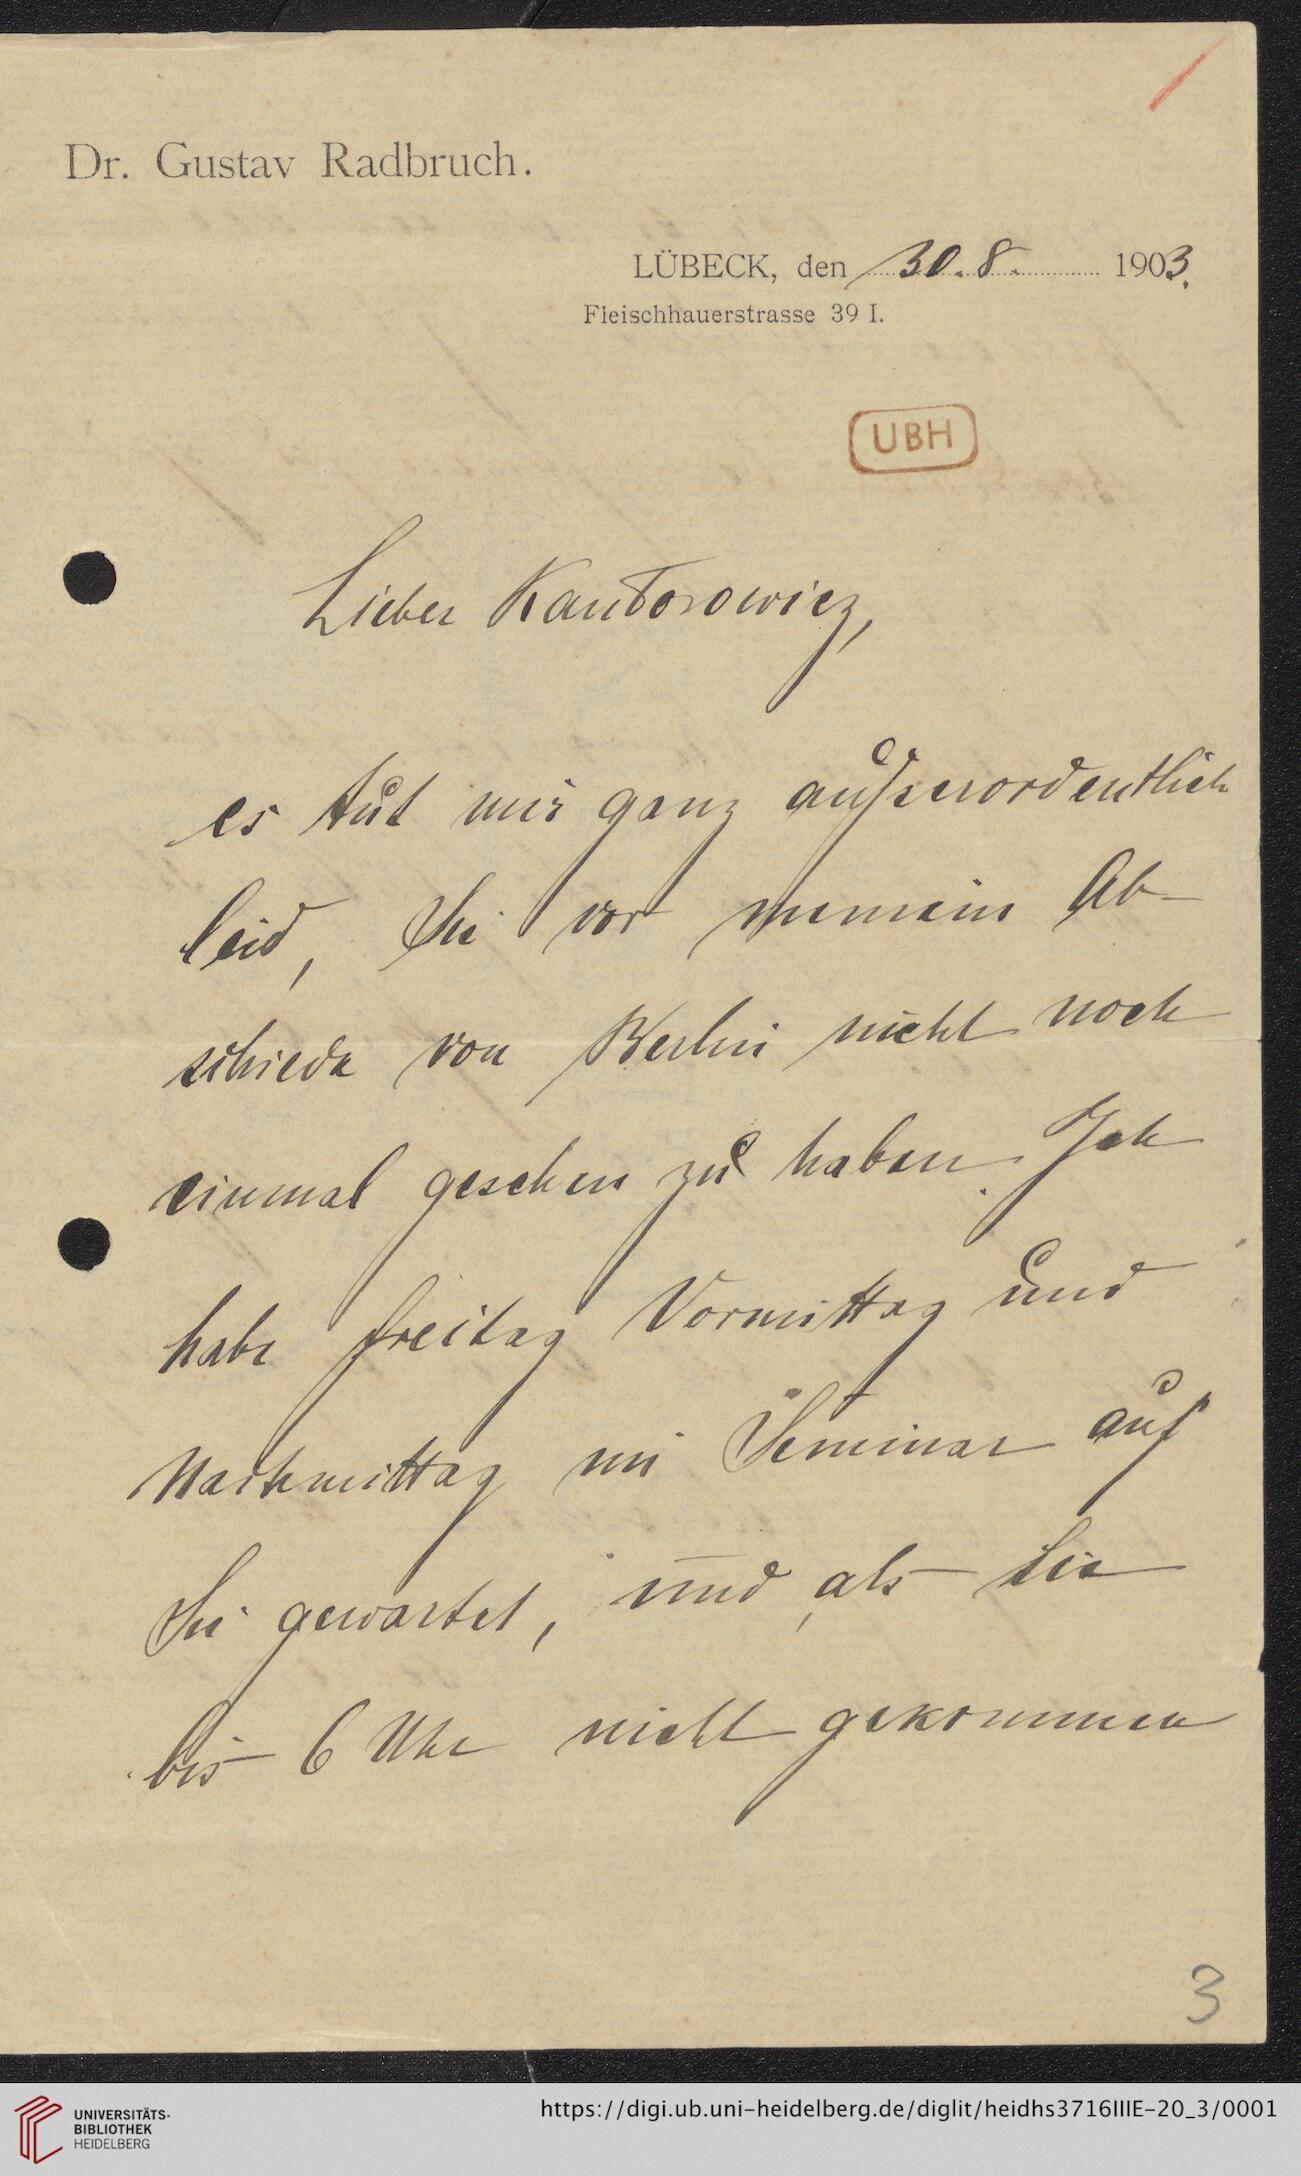 Dr. Gustav Radbruch.
LÜBECK, den 30.8. 1903.
Fleischhauerstrasse 39 I.
UBH
Lieber Kantorowicz,
es tut mir ganz außerordentlich
leid, Sie vor meinem Ab-
schiede von Berlin nicht noch
einmal gesehen zu haben. Ich
habe Freitag Vormittag und
Nachmittag im Seminar auf
Sie gewartet, und als Sie
bis 6 Uhr nicht gekommen
3
UNIVERSITÄTS-
BIBLIOTHEK
HEIDELBERG
https://digi.ub.uni-heidelberg.de/diglit/heidhs3716IIIE-20_3/0001